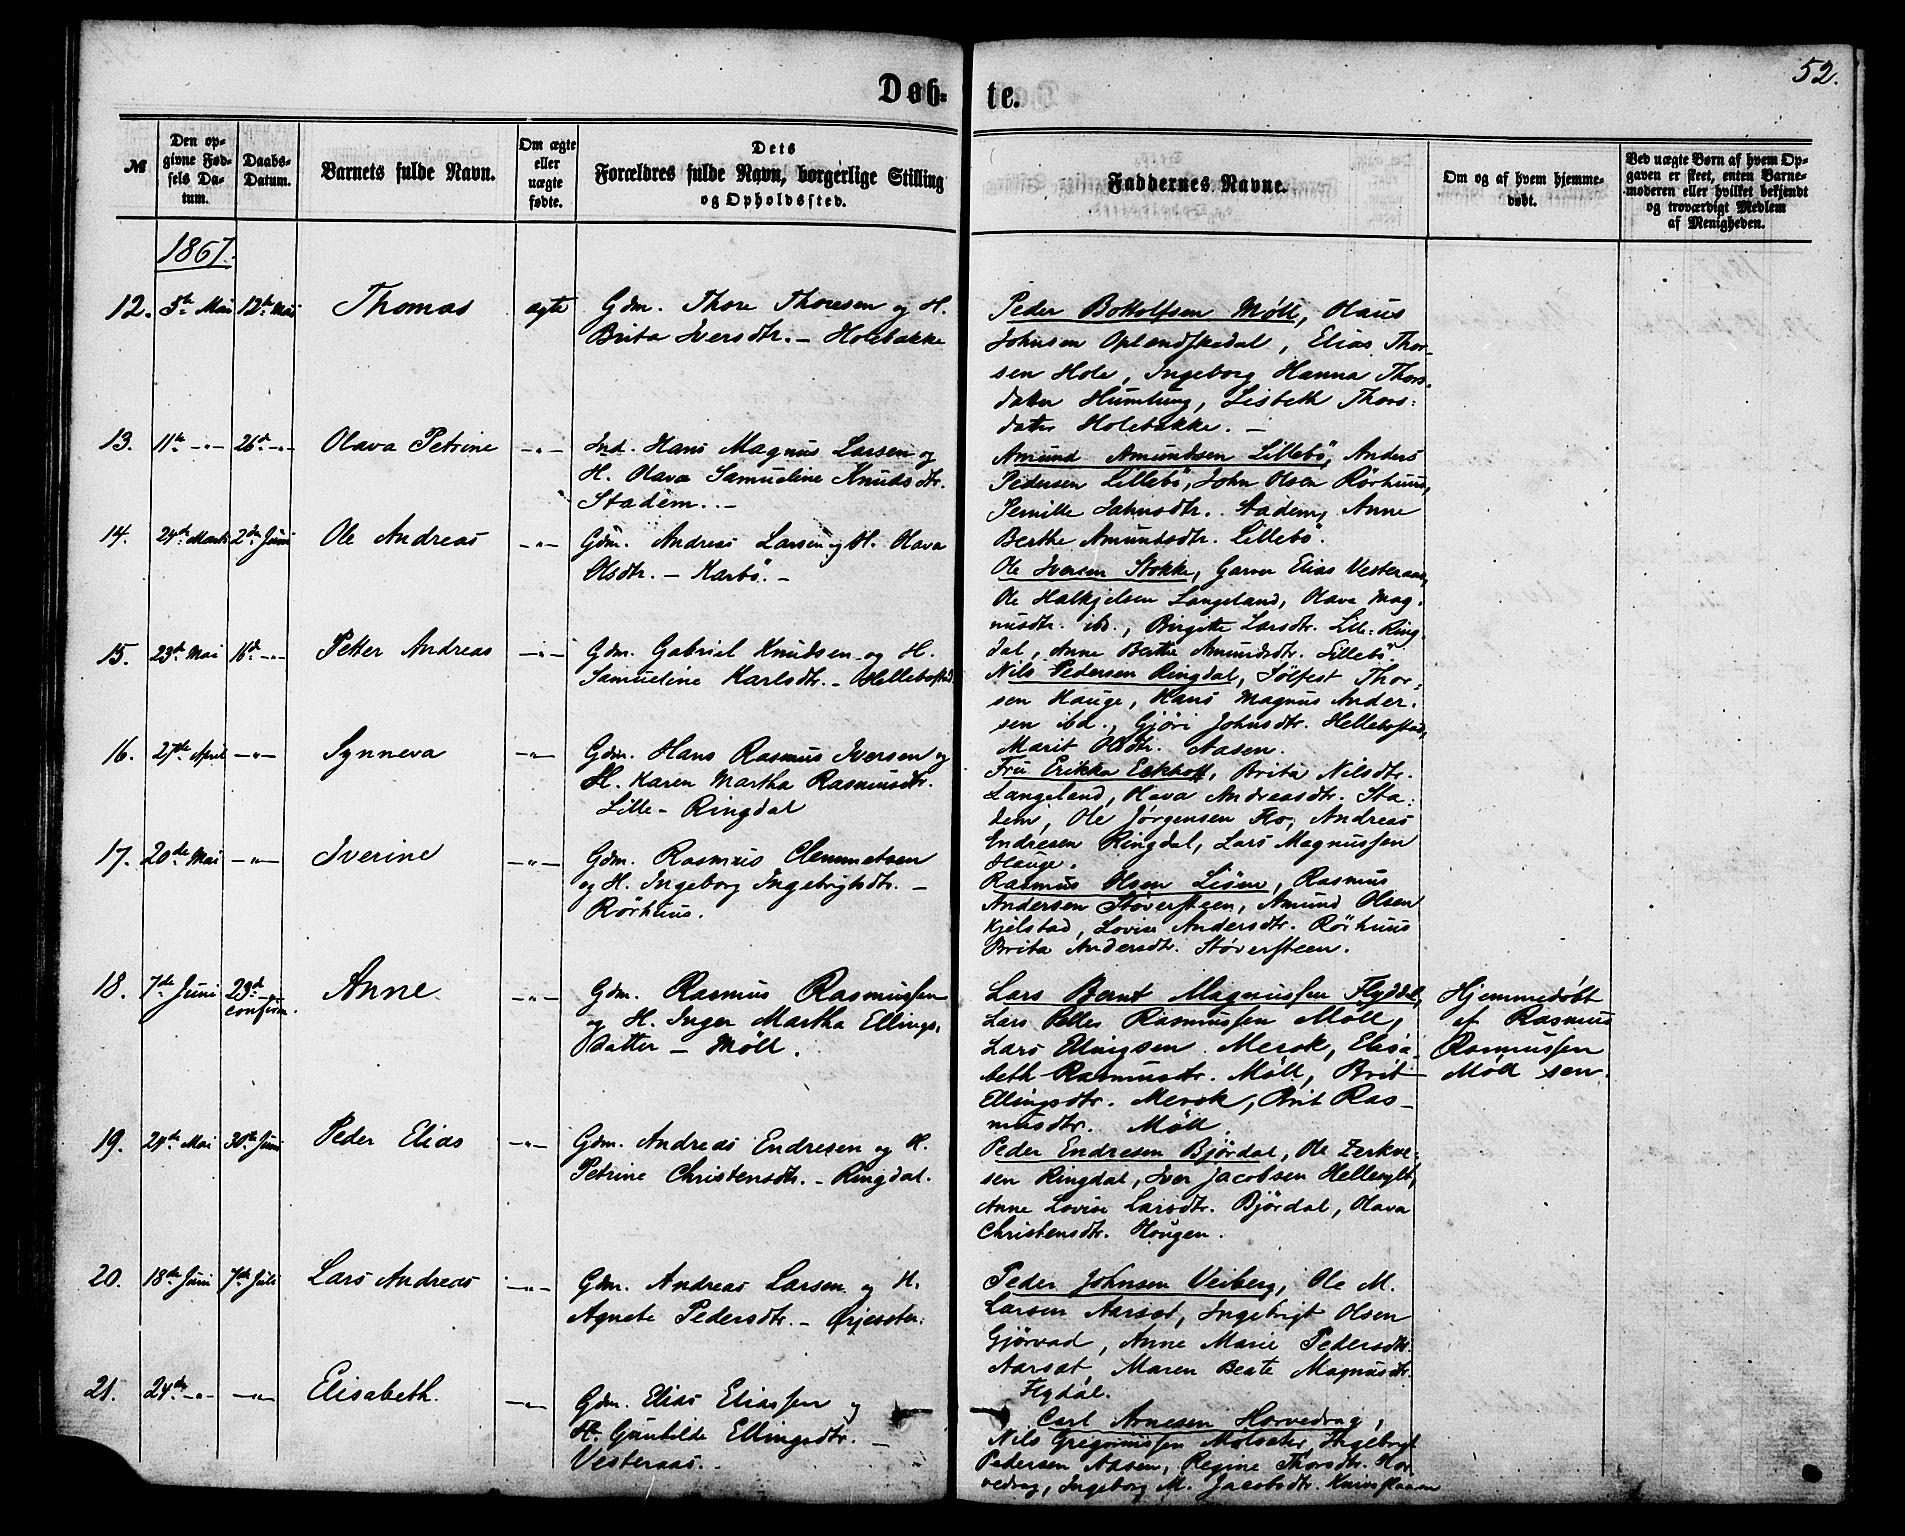 52.
Døb- te.
№
Den op-
givne Fød-
sels Da-
tum.
Daabs-
Datum.
Barnets fulde Navn.
Om ægte
eller
uægte
fødte.
Dets
Forældres fulde Navn, borgerlige Stilling
og Opholdssted.
Faddernes Navne.
Om og af hvem hjemme-
døbt.
Ved uægte Børn af hvem Op-
gaven er skeet, enten Barne-
moderen eller hvilket bekjendt
og troværdigt Medlem
af Menigheden.
1867.
12. 5te Mai 12te Mai Thomas ægte Gdm. Thore Thoresen og H.
Brita Iversdtr. - Holebakke
Peder Bottolfsen Møll, Hans
Johnsen Oplendskedal, Elias Thor-
sen Hole, Ingeborg Hanna Thors-
datter Humlung, Lisbeth Thors-
datter Holebakke. -
13. 11te -"- 26d -"- Olava Petrine -"- Ind. Hans Magnus Larsen og
H. Olava Samueline Knudsdtr.
Stadem. -
Amund Amundsen Lillebö, Anders
Pedersen Lillebö, John Olsen Rörhuus,
Pernille Jahnsdtr. Stadem, Anne
Berthe Amundsdtr. Lillebö.
14. 24de Marts 2den Juni Ole Andreas -"- Gdm. Andreas Larsen og H. Olava
Olsdtr. - Karbö. -
Ole Iversen Stokke, Garver Elias Vesteraas,
Ole Halkjelsen Langeland, Olava Mag-
nusdtr. ibd., Birgitte Larsdtr. Lille-Ring-
dal, Anne Berthe Amundsdtr. Lillebö.
15. 23de Mai 16d -"- Petter Andreas -"- Gdm. Gabriel Knudsen og H.
Samueline Karlsdtr. - Hellebostad
Nils Pedersen Ringdal, Sölfest Thor-
sen Hauge, Hans Magnus Ander-
sen ibd., Gjöri Johnsdtr. Hellebostad,
Marit Olsdtr. Aasen.
16. 27de April -"- Synneva -"- Gdm. Hans Rasmus Iversen og
H. Karen Martha Rasmusdtr.
Lille-Ringdal
Fru Erikka Eckhoff, Brita Nilsdtr.
Langeland, Olava Andreasdtr. Sta-
dem, Ole Jørgensen Flo, Andreas
Endresen Ringdal, Lars Magnussen
Hauge.
17. 20de Mai -"- Iverine -"- Gdm. Rasmus Clemmetsen
og H. Ingeborg Ingebrigtsdtr. -
Rörhuus.
Rasmus Olsen Liöen, Rasmus
Andersen Støversteen, Amund Olsen
Kjelstad, Lovise Andersdtr. Rörhuus
Brita Andersdtr. Støversteen.
18. 7de Juni 23d -"-
confirm. Anne -"- Gdm. Rasmus Rasmussen
og H. Inger Martha Ellings-
datter - Möll.
Lars Bernt Magnussen Flyddal,
Lars Petter Rasmussen Möll,
Lars Ellingsen Merok, Elisa-
beth Rasmusdtr. Möll, Brit
Ellingsdtr. Merok, Brit Ras-
musdtr. Möll.
Hjemmedöbt
af Rasmus
Rasmussen
Möll sen.
19. 24de Mai 30te Juni Peder Elias -"- Gdm. Andreas Endresen og H.
Petrine Christensdtr. - Ringdal.
Peder Endresen Björdal, Ole Zerkve-
sen Ringdal, Iver Jacobsen Hellesylt,
Anne Lovise Larsdtr. Björdal, Olava
Christensdtr. Hougen.
20. 18de Juni 7de Juli Lars Andreas -"- Gdm. Andreas Larsen og H.
Agnete Pedersdtr. - Ørjesæter.
Peder Johnsen Veiberg, Ole M.
Larsen Aarsæt, Ingebrigt Olsen
Gjørvad, Anne Marie Pedersdtr.
Aarsæt, Maren Beate Magnusdtr.
Flydal.
21. 24de -"- -"- Elisabeth. -"- Gdm. Elias Eliassen og
H. Gunhilde Ellingsdtr. -
Vesteraas. -
Carl Arnesen Horvedrag,
Nils Gregoriussen Molsæter, Ingebrigt
Pedersen Aasen, Regine Thorsdtr. Hor-
vedrag, Ingeborg M. Jacobsdtr. Knivsflaaen